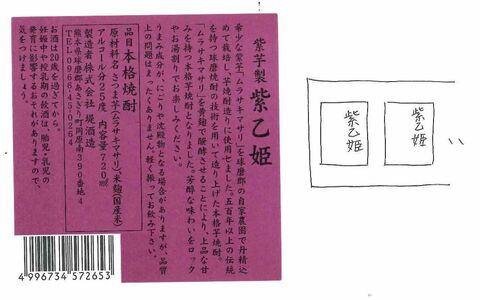 紫芋製 紫乙姫
希少な紫芋「ムラサキマサリ」を球磨郡の自家農園で丹精込
めて栽培し、芋焼酎造りに使用しました。五百年以上の伝統
を持つ球磨焼酎の技術を用いて造り上げた本格芋焼酎。
「ムラサキマサリ」を黄麹で醗酵させることにより、上品な甘
みを持つ本格芋焼酎となりました。芳醇な味わいをロック
やお湯割りでお楽しみください。
うまみ成分が、にごりや沈殿物となる場合がありますが、品質
上の問題はまったくありません。軽く振ってお飲み下さい。
品目 本格焼酎
原材料名 さつま芋(ムラサキマサリ)、米麹(国産米)
アルコール分 25度 内容量 720ml
製造者 株式会社 堤酒造
熊本県球磨郡あさぎり町岡原南390番地4
TEL 0966-45-0264
お酒は20歳を過ぎてから。
妊娠中や授乳期の飲酒は、胎児・乳児の
発育に影響するおそれがありますので、
気をつけましょう。
4 996734 572653
紫乙姫
紫乙姫